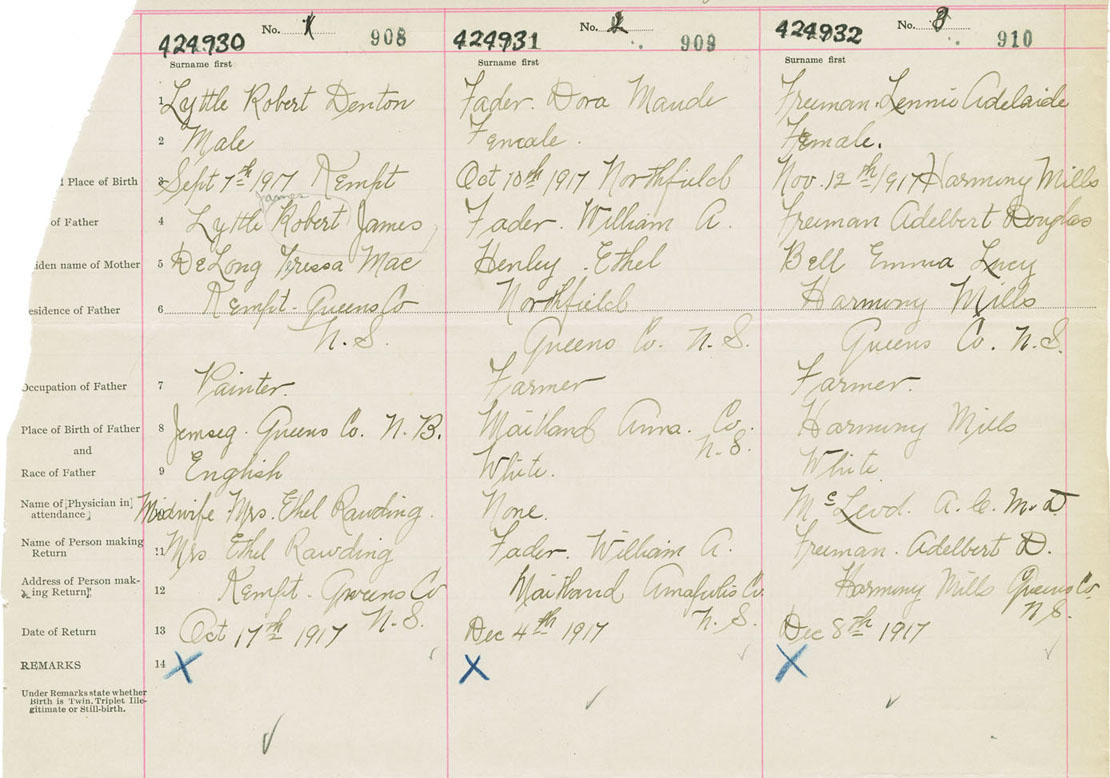 No. 1 908
424930
Surname first
No. 2 909
424931
Surname first
No. 3 910
424932
Surname first
1 Lyttle Robert Denton
Fader. Dora Maude
Freeman. Lennie Adelaide
2 Male
Female.
Female.
Place of Birth
3 Sept 7th 1917 Kempt
Oct 10th 1917 Northfield
Nov. 12th 1917 Harmony Mills
James
of Father
4 Lyttle Robert James
Fader. William A.
Freeman Adelbert Douglas
iden name of Mother
5 DeLong Tressa Mae
Henley. Ethel
Bell Emma Lucy
esidence of Father
6 Kempt - Queens Co
N. S.
Northfield
Queens Co. N. S.
Harmony Mills
Queens Co. N. S.
Occupation of Father
7 Painter.
Farmer
Farmer.
Place of Birth of Father
8 Jemseg. Queens Co. N. B.
Maitland Anna. Co.
N. S.
Harmony Mills
and
Race of Father
9 English
White.
White.
Name of [Physician in
attendance]
10 Midwife Mrs. Ethel Rawding.
None.
A. C. M.D
Name of Person making
Return
11 Mrs Ethel Rawding
Fader. William A.
Freeman. Adelbert D.
Address of Person mak-
ing Return]
12 Kempt. Queens Co
N. S.
Maitland Co.
N. S.
Harmony Mills Queens Co.
N S.
Date of Return
13 Oct 17th 1917
Dec 4th 1917
Dec 8th 1917
REMARKS
14 X
X
X
Under Remarks state whether
Birth is Twin, Triplet Ille-
gitimate or Still-birth.